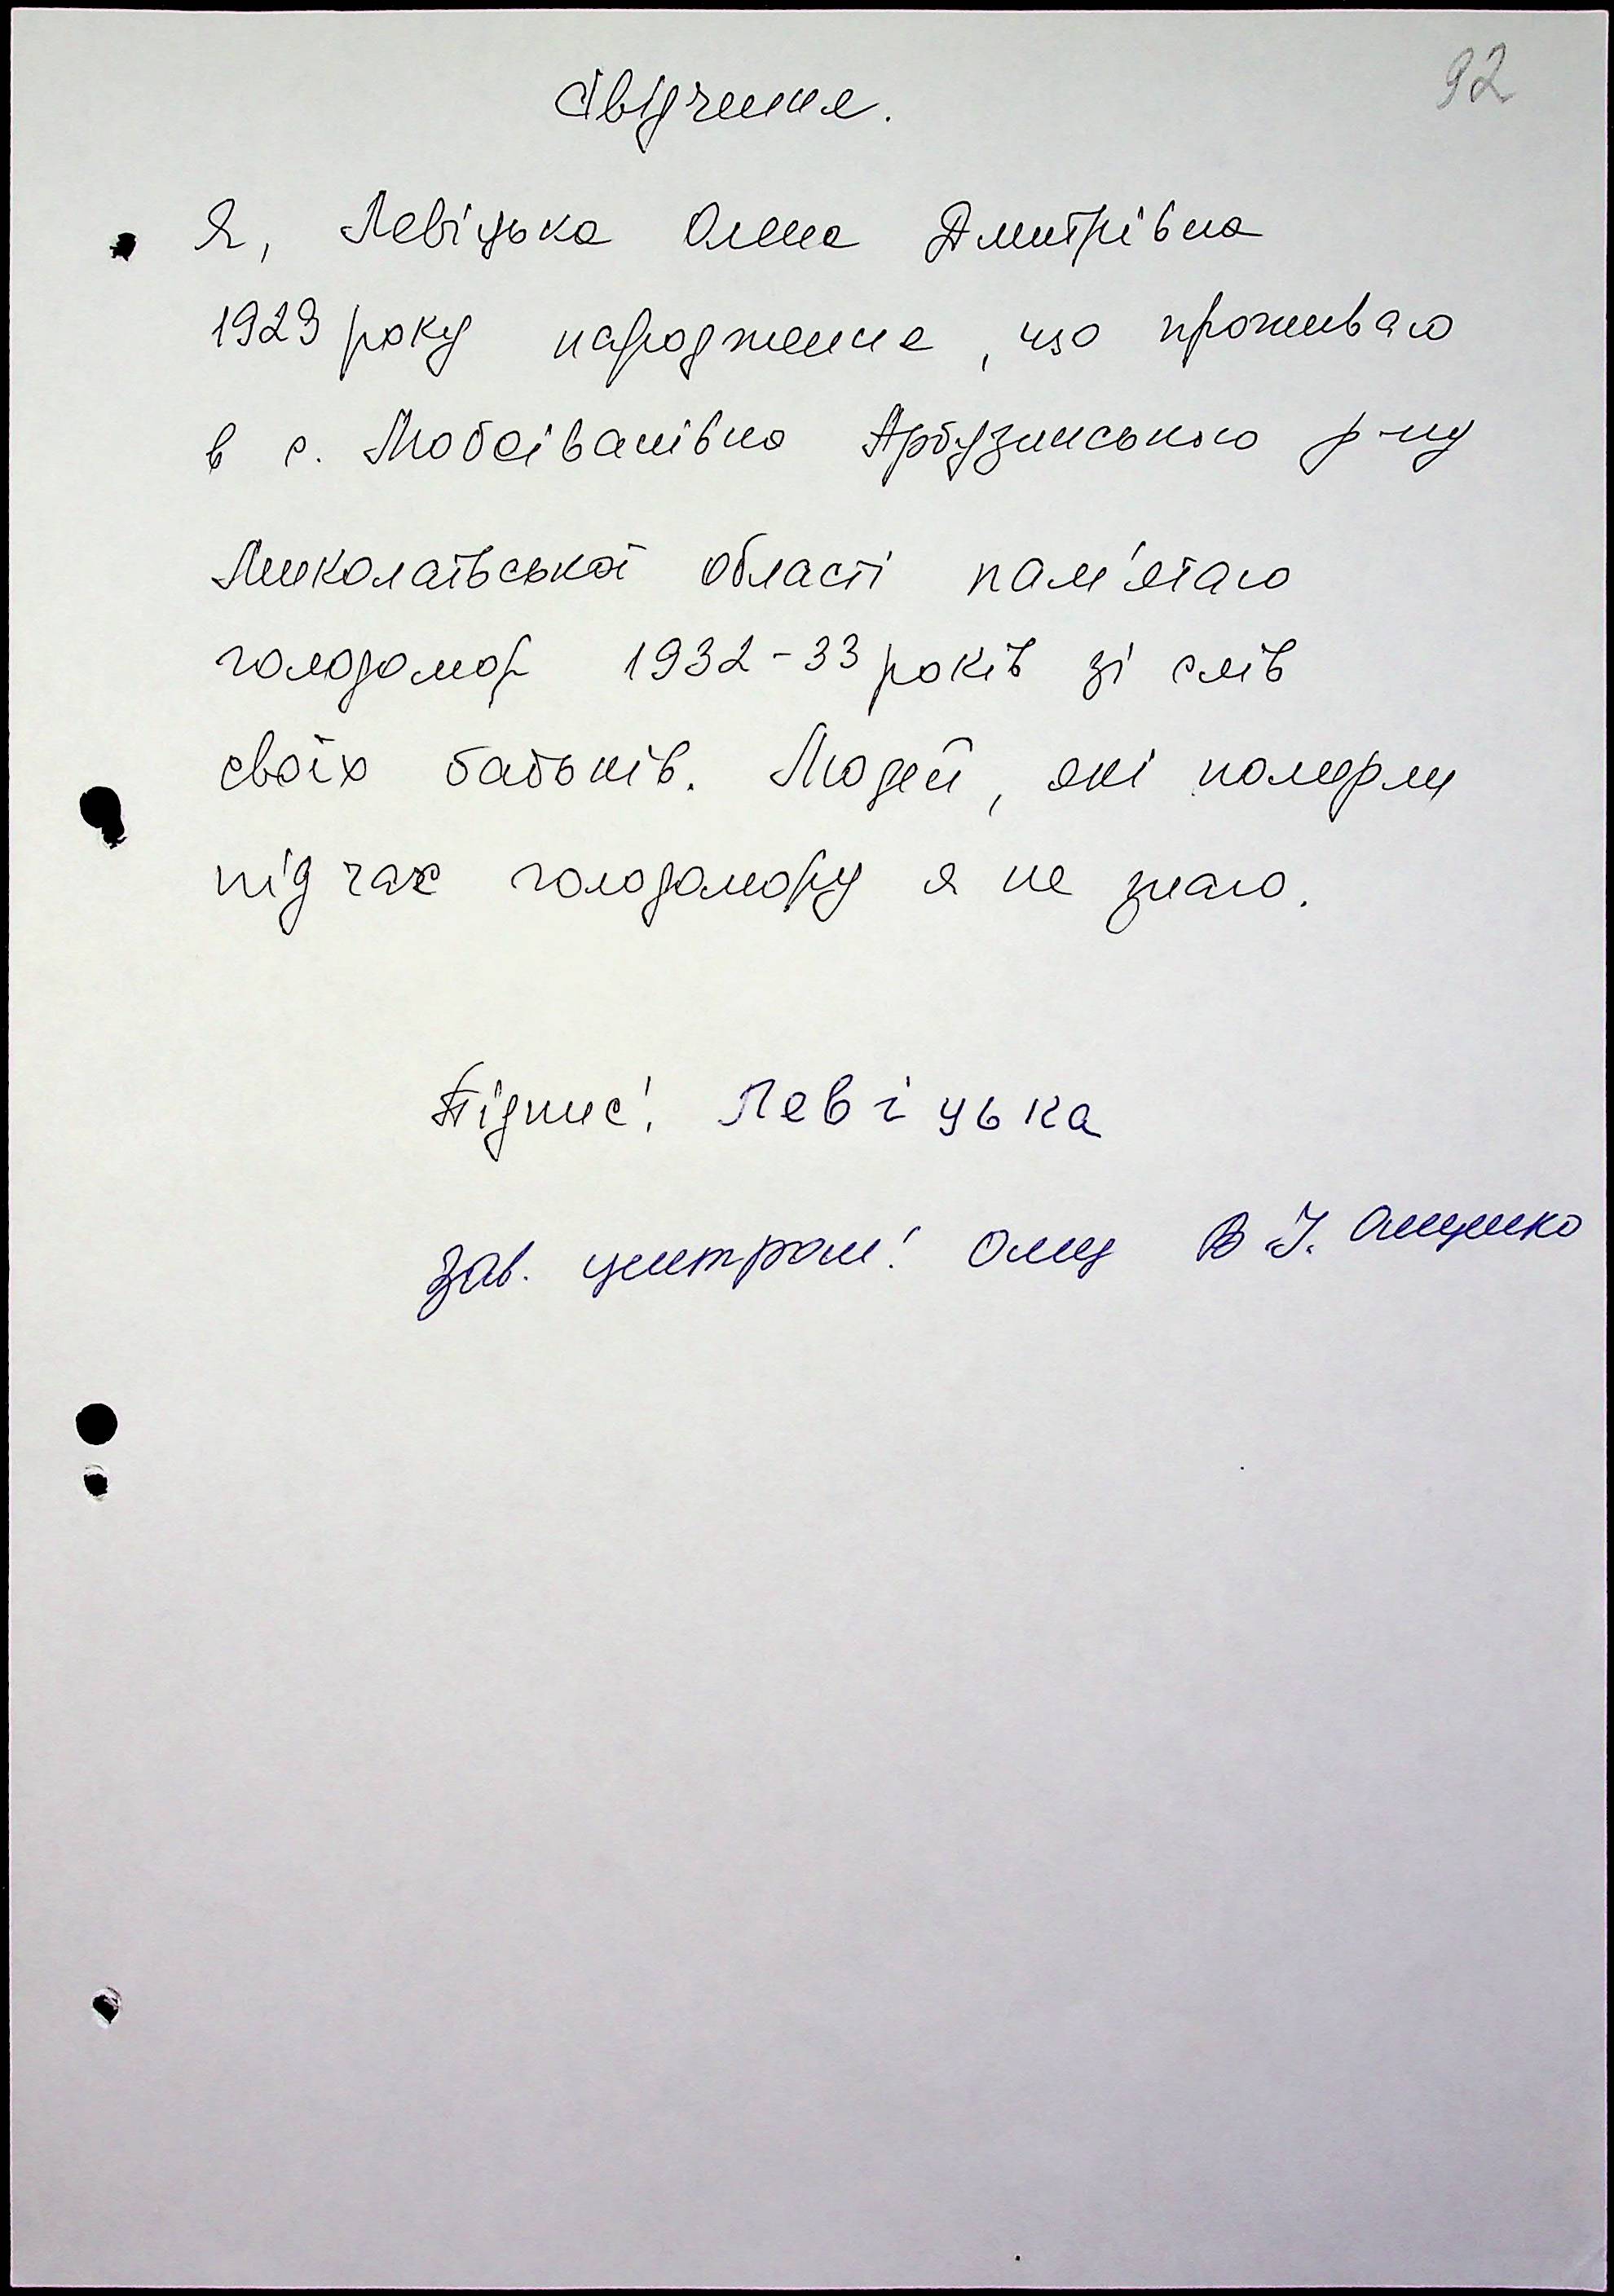 92
Свідчення.
Я, Левіцька Олена Дмитрівна
1929 року народження, що проживаю
в с. Любоіванівка Арбузинського р-ну
Миколаївської області пам'ятаю
голодомор 1932-33 років зі слів
своїх батьків. Людей, які померли
під час голодомору я не знаю.
Підпис: Левіцька
Зав. центром: В.І. Онищенко